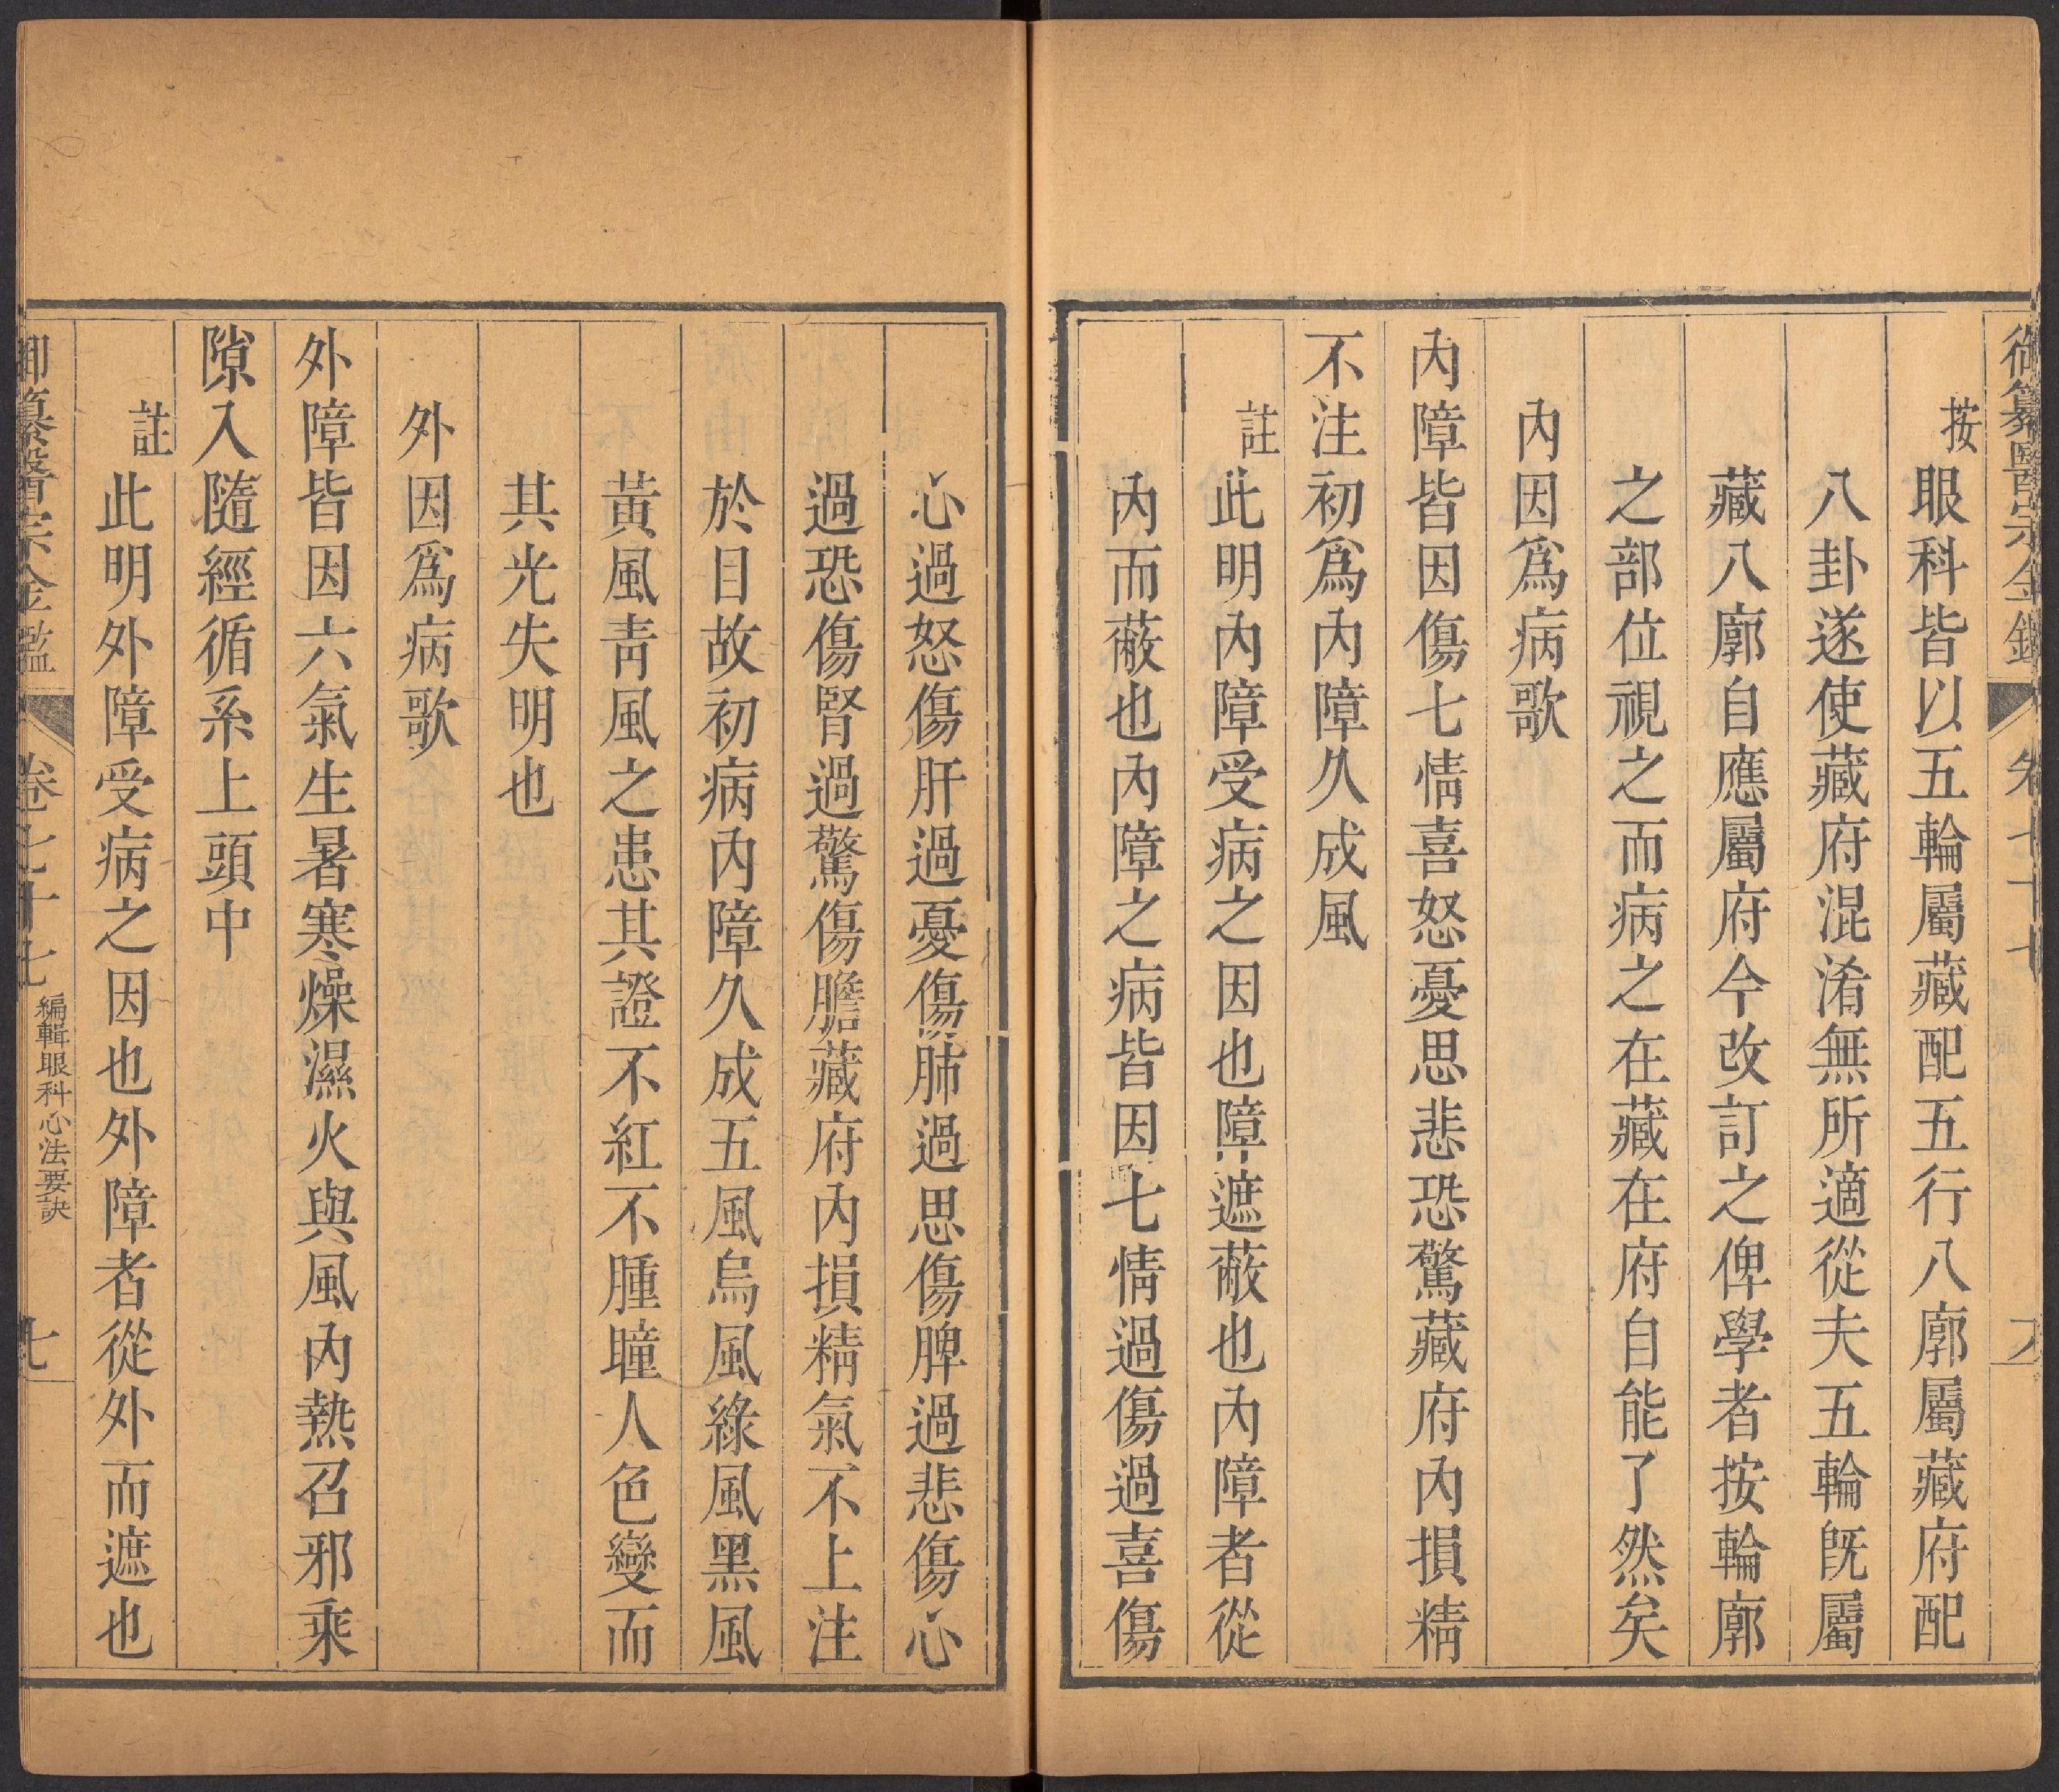 御纂醫宗金鑑
卷七十七
按眼科皆以五輪屬藏配五行八廓屬藏府配
八卦遂使藏府混淆無所適從夫五輪既屬
藏八廓自應屬府今改訂之俾學者按輪廓
之部位視之而病之在藏在府自能了然矣
內因爲病歌
內障皆因傷七情喜怒憂思悲恐驚藏府內損精
不注初爲內障久成風
註此明內障受病之因也障遮蔽也內障者從
內而蔽也內障之病皆因七情過傷過喜傷
心過怒傷肝過憂傷肺過思傷脾過悲傷心
過恐傷腎過驚傷膽藏府內損精氣不上注
於目故初病內障久成五風烏風綠風黑風
黃風靑風之患其證不紅不腫瞳人色變而
其光失明也
外因爲病歌
外障皆因六氣生暑寒燥濕火與風內熱召邪乘
隙入隨經循系上頭中
註此明外障受病之因也外障者從外而遮也
御纂醫宗金鑑
卷七十七
編輯眼科心法要訣
七